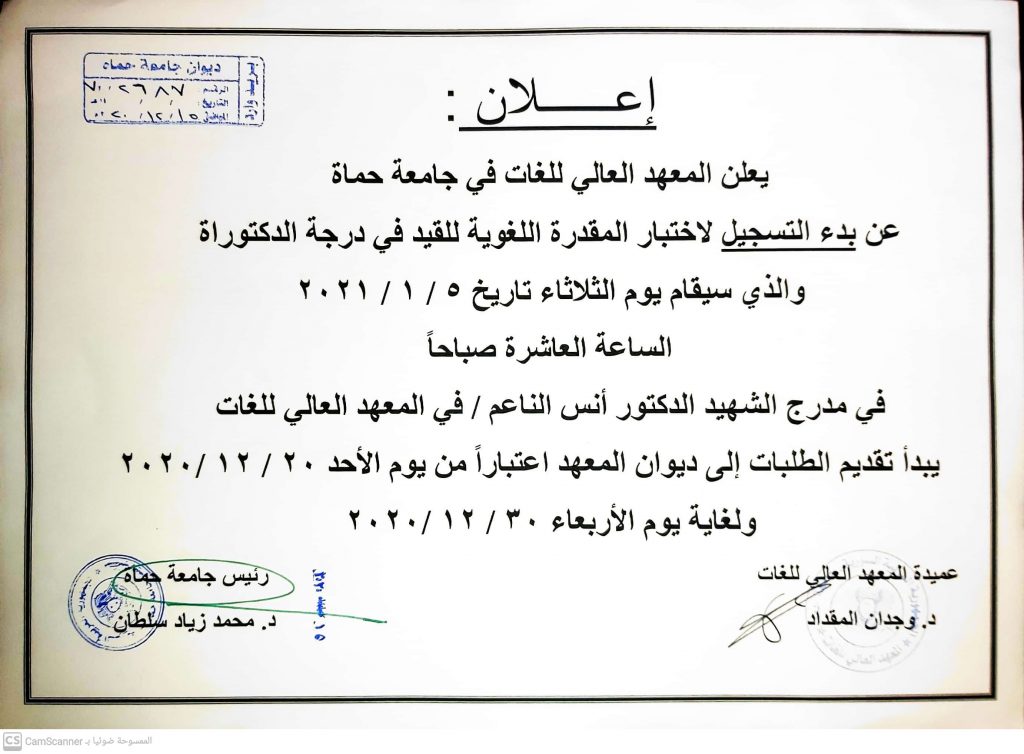 ديوان جامعة حماه
بريد وارد
الرقم
التاريخ
إعـــــلان :
يعلن المعهد العالي للغات في جامعة حماة
عن بدء التسجيل لاختبار المقدرة اللغوية للقيد في درجة الدكتوراة
والذي سيقام يوم الثلاثاء تاريخ ٥ / ١ / ٢٠٢١
الساعة العاشرة صباحاً
في مدرج الشهيد الدكتور أنس الناعم / في المعهد العالي للغات
يبدأ تقديم الطلبات إلى ديوان المعهد اعتباراً من يوم الأحد ٢٠ / ١٢ /٢٠٢٠
ولغاية يوم الأربعاء ٣٠ / ١٢ /٢٠٢٠
عميدة المعهد العالي للغات
د. وجدان المقداد
رئيس جامعة حماه
د. محمد زياد سلطان
CS CamScanner الممسوحة ضوئيا بـ